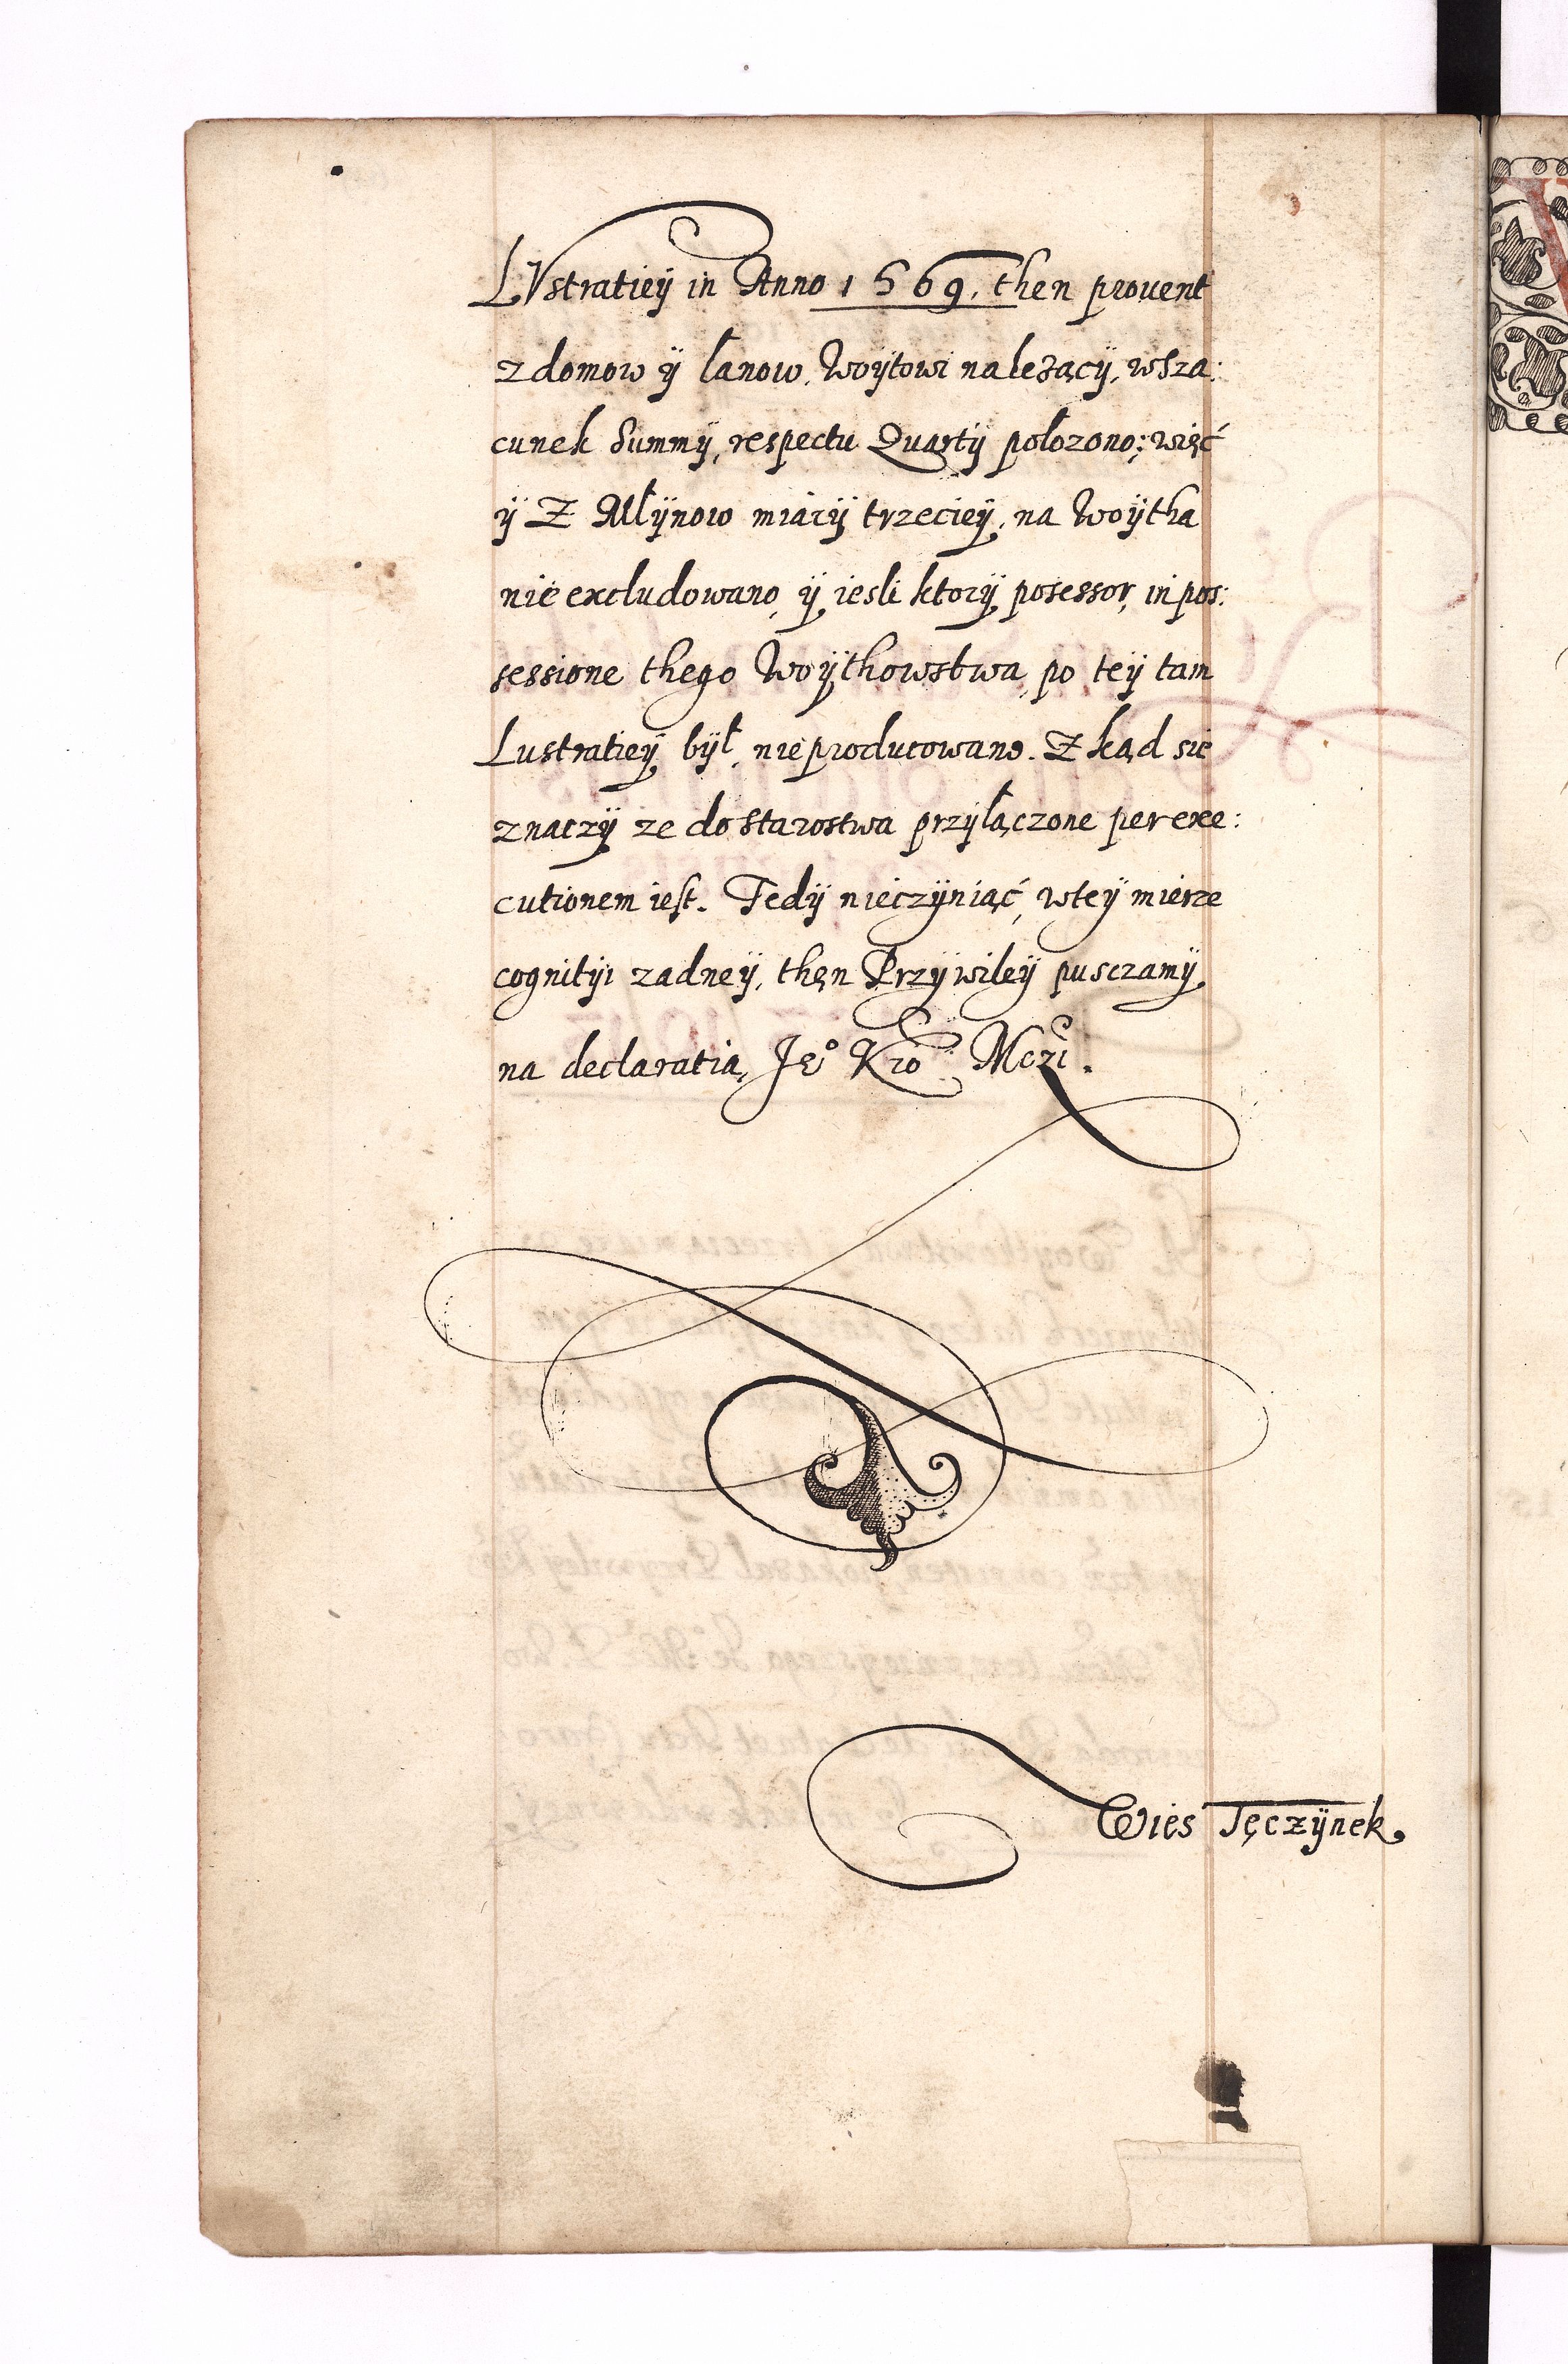 LVstratieÿ in Anno 1569, then prouent
z domow ÿ łanow, Woÿtowi należącÿ, w sza:
cunek Summÿ, respectu Quartÿ położono; więć
ÿ Z Młÿnow miarÿ trzecieÿ, na Woÿtha
nie excludowano, ÿ iesli ktorÿ posessor, in pos:
sessione thego Woÿthowstwa, po teÿ tam
Lustratieÿ bÿł, nie producowano. Z kąd sie
znaczÿ ze do Starostwa przÿłączone per exe:
cutionem iest. Tedÿ nieczÿniąć, w teÿ mierze
cognitÿi zadneÿ, then Przÿwileÿ pusczamÿ
na declaratią, Je° Kro Mczi.
Wies Tęczÿnek.